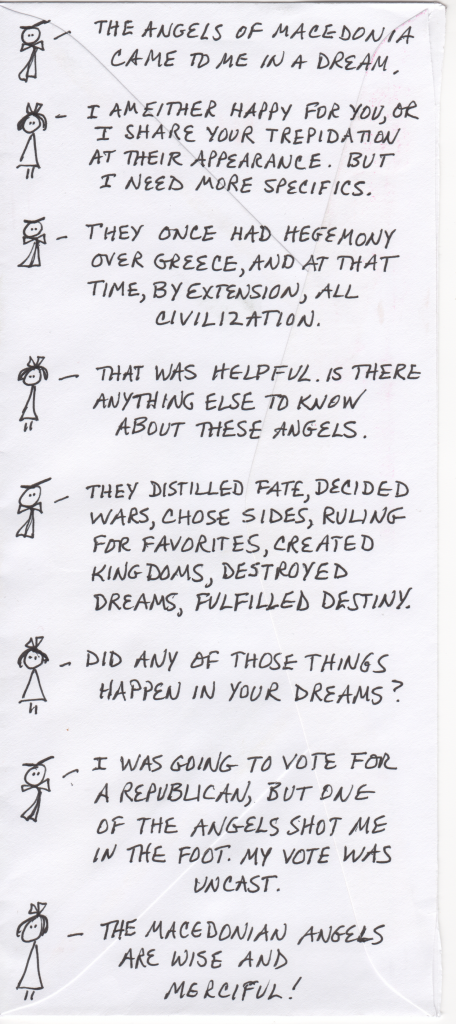 THE ANGELS OF MACEDONIA
CAME TO ME IN A DREAM.
I AM EITHER HAPPY FOR YOU, OR
I SHARE YOUR TREPIDATION
AT THEIR APPEARANCE. BUT
I NEED MORE SPECIFICS.
THEY ONCE HAD HEGEMONY
OVER GREECE, AND AT THAT
TIME, BY EXTENSION, ALL
CIVILIZATION.
THAT WAS HELPFUL. IS THERE
ANYTHING ELSE TO KNOW
ABOUT THESE ANGELS.
THEY DISTILLED FATE, DECIDED
WARS, CHOSE SIDES, RULING
FOR FAVORITES, CREATED
KINGDOMS, DESTROYED
DREAMS, FULFILLED DESTINY.
DID ANY OF THOSE THINGS
HAPPEN IN YOUR DREAMS?
I WAS GOING TO VOTE FOR
A REPUBLICAN, BUT ONE
OF THE ANGELS SHOT ME
IN THE FOOT. MY VOTE WAS
UNCAST.
THE MACEDONIAN ANGELS
ARE WISE AND
MERCIFUL!